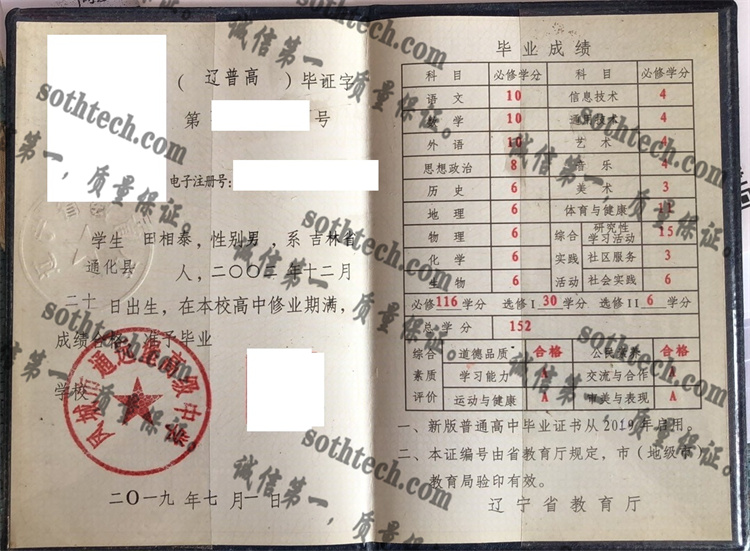 （辽普高）毕证字
第 号
电子注册号：
学生 田相泰，性别男，系 吉林省
通化县 人，二〇〇二年十二月
二十日出生，在本校高中修业期满，
成绩合格，准予毕业
学校
二〇一九年七月一日
毕业成绩
科目 必修学分 科目 必修学分
语文 10 信息技术 4
数学 10 通用技术 4
外语 10 艺术 4
思想政治 8 音乐 4
历史 6 美术 3
地理 6 体育与健康 12
物理 6 综合 研究性学习活动 15
化学 6 实践 社区服务 3
生物 6 活动 社会实践 6
必修116学分 选修I 30学分 选修II 6学分
总学分 152
综合 道德品质 合格 公民素养 合格
素质 学习能力 A 交流与合作 A
评价 运动与健康 A 审美与表现 A
一、新版普通高中毕业证书从2019年启用。
二、本证编号由省教育厅规定，市（地级市）
教育局验印有效。
辽宁省教育厅
sothtech.com
诚信第一，质量保证。